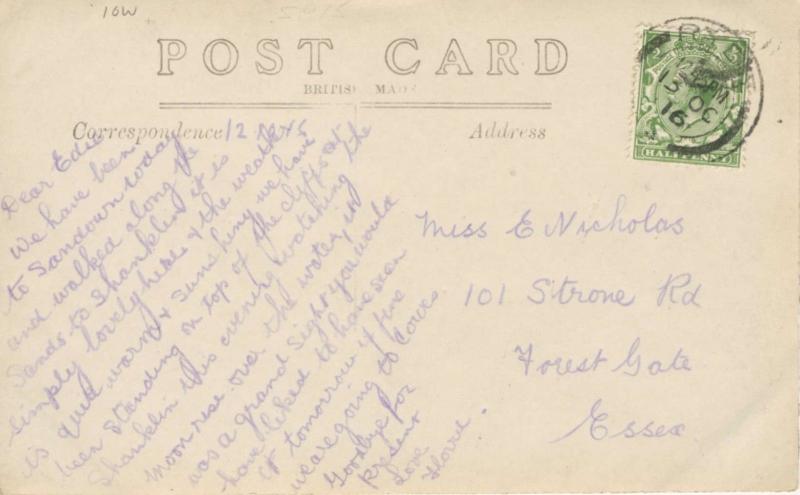 IOW
POST CARD
BRITISH MADE
Correspondence
Address
Dear Edie
We have been
to Sandown today
and walked along the
Sands to Shanklin it is
simply lovely here & the weather
is quite warm & sunshiny we have
been standing on top of the cliffs at
Shanklin this evening watching the
moon rise over the water, it
was a grand sight you would
have liked to have seen
it tomorrow if fine
we are going to Cowes
Goodbye for
present
Love
Florrie.
Miss E Nicholas
101 Strone Rd
Forest Gate
Essex
HALFPENNY
13 OC
16